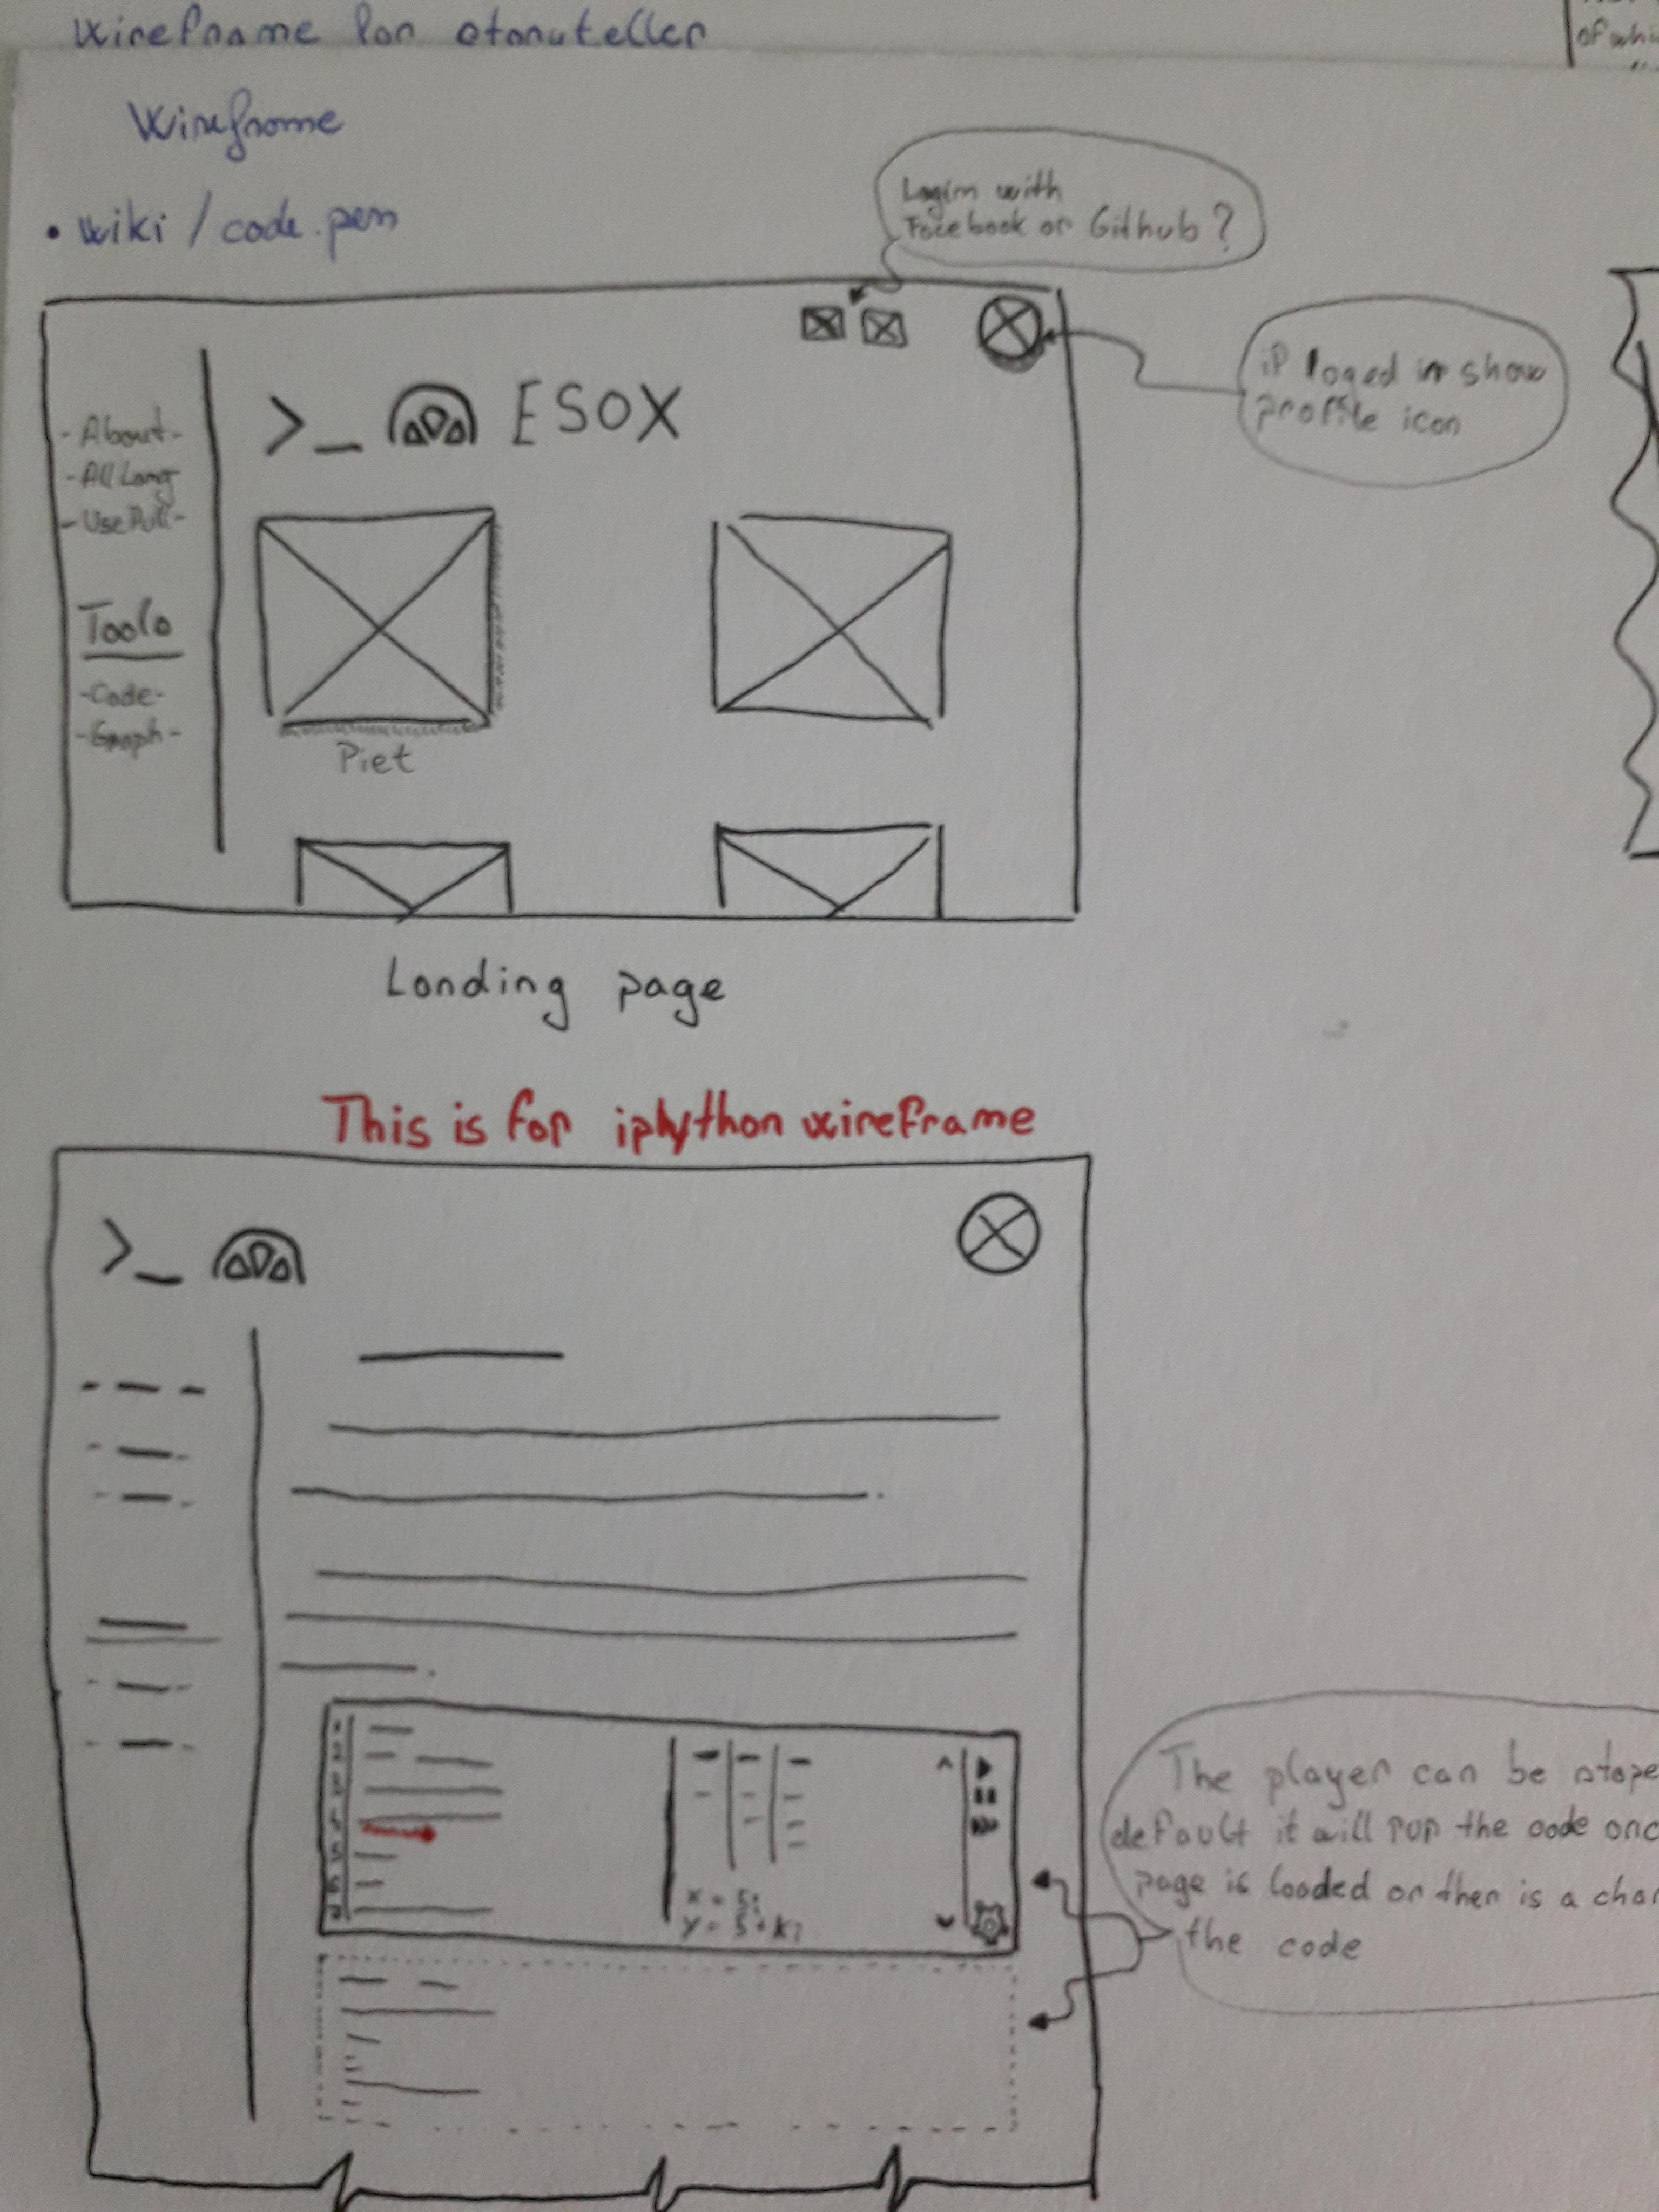 Wireframe for
Wireframe
• wiki / code.pen
Login with
Facebook or Github?
if loged in show
profile icon
>_ ESOX
- About -
- All Lang
- Use Pull -
Tools
- Code -
- Graph -
Piet
Landing page
This is for iphython wireframe
>_
x = 5;
The player can be stope
default it will run the code onc
page is loaded or then is a cha
the code